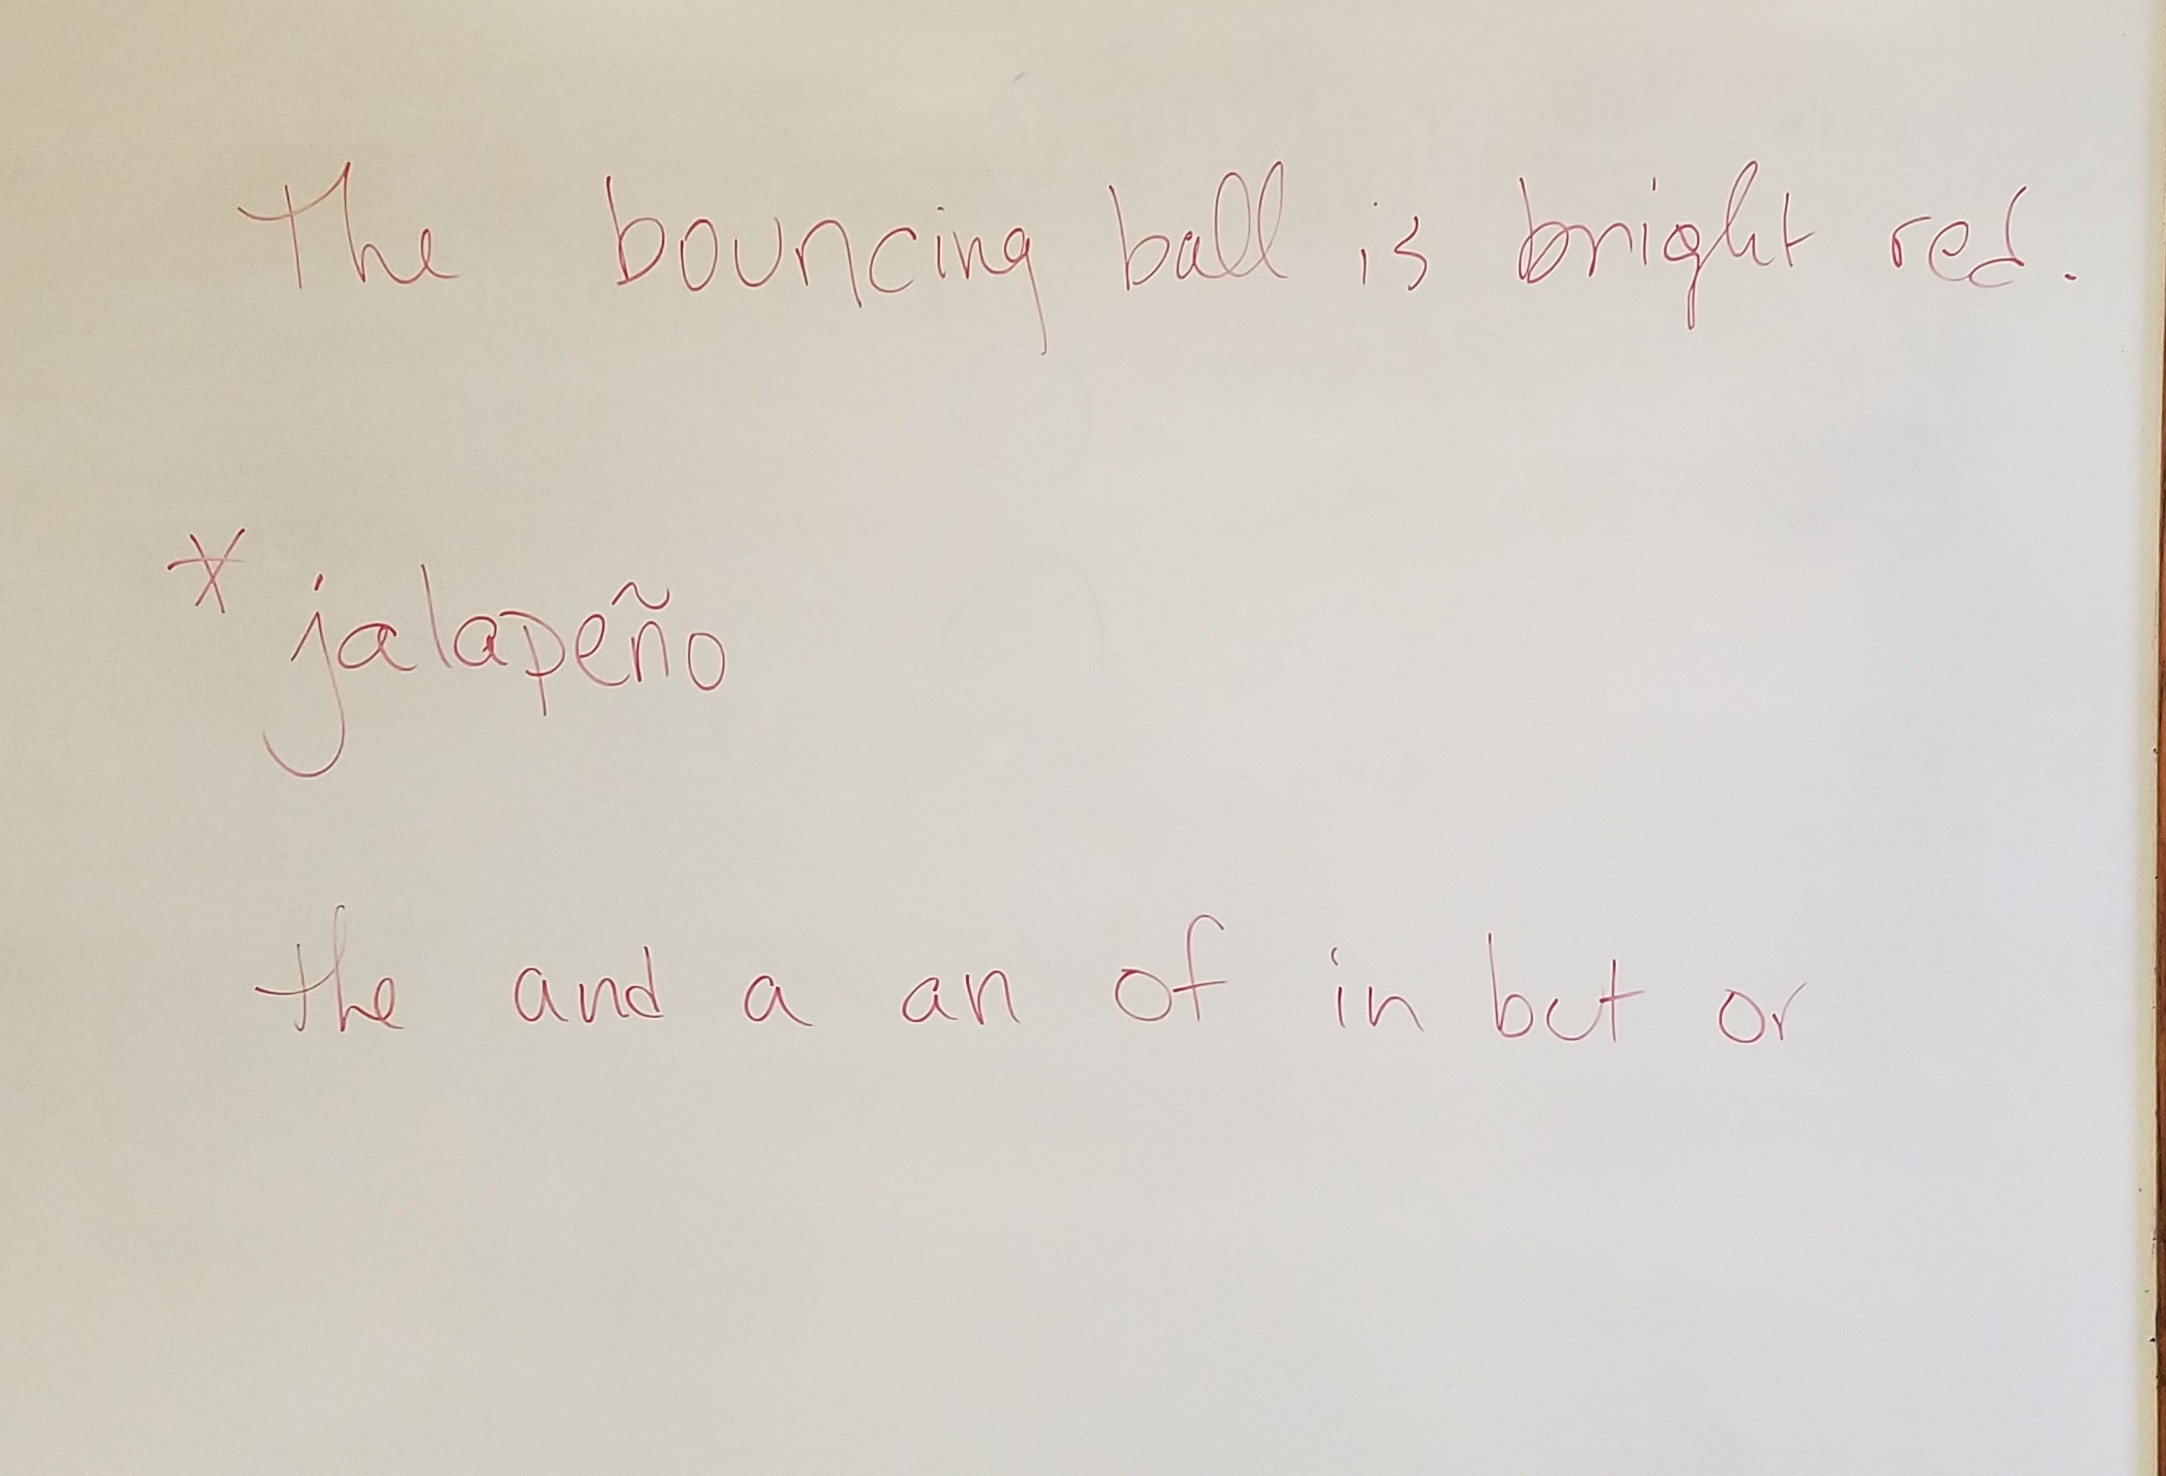 The bouncing ball is bright red.
* jalapeño
the and a an of in but or